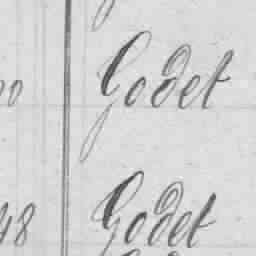 Godet
48 Godet